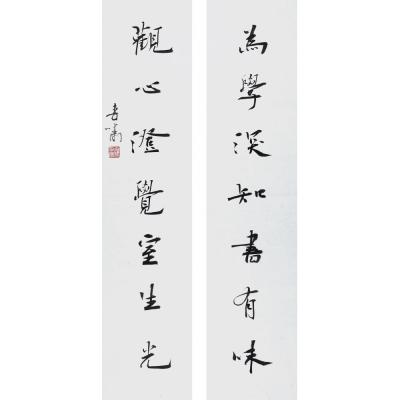 為學深知書有味
觀心澄覺室生光